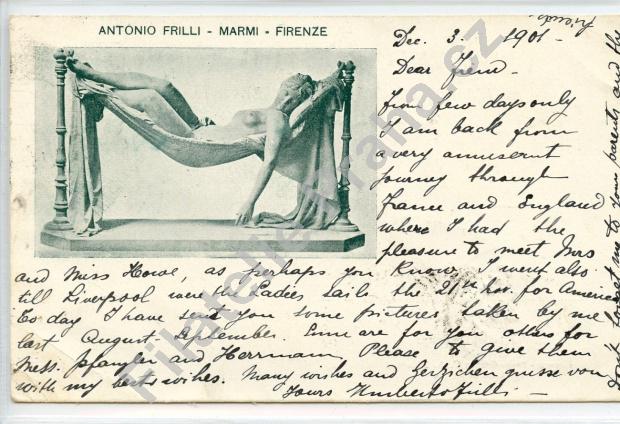 ANTONIO FRILLI - MARMI - FIRENZE
Dec. 3. 1901 -
Dear Frend -
from few days only
I am back from
a very amuserent
journey through
france and England
where I had the
pleasure to meet Mrs
and Miss Howe, as perhaps you know, I went also
till Liverpool were the Ladies sails the 21st nov. for America
To day I have send you some pictures taken by me
last August - September. are for you others for
Mess. Pfangler and Herrmann, Please to give them
with my best wihes. Many wishes and Herzlichen grusse von
Yours Umberto Frilli -
don't forget me to your parents and the
friends.
Filatelie-Praha.cz